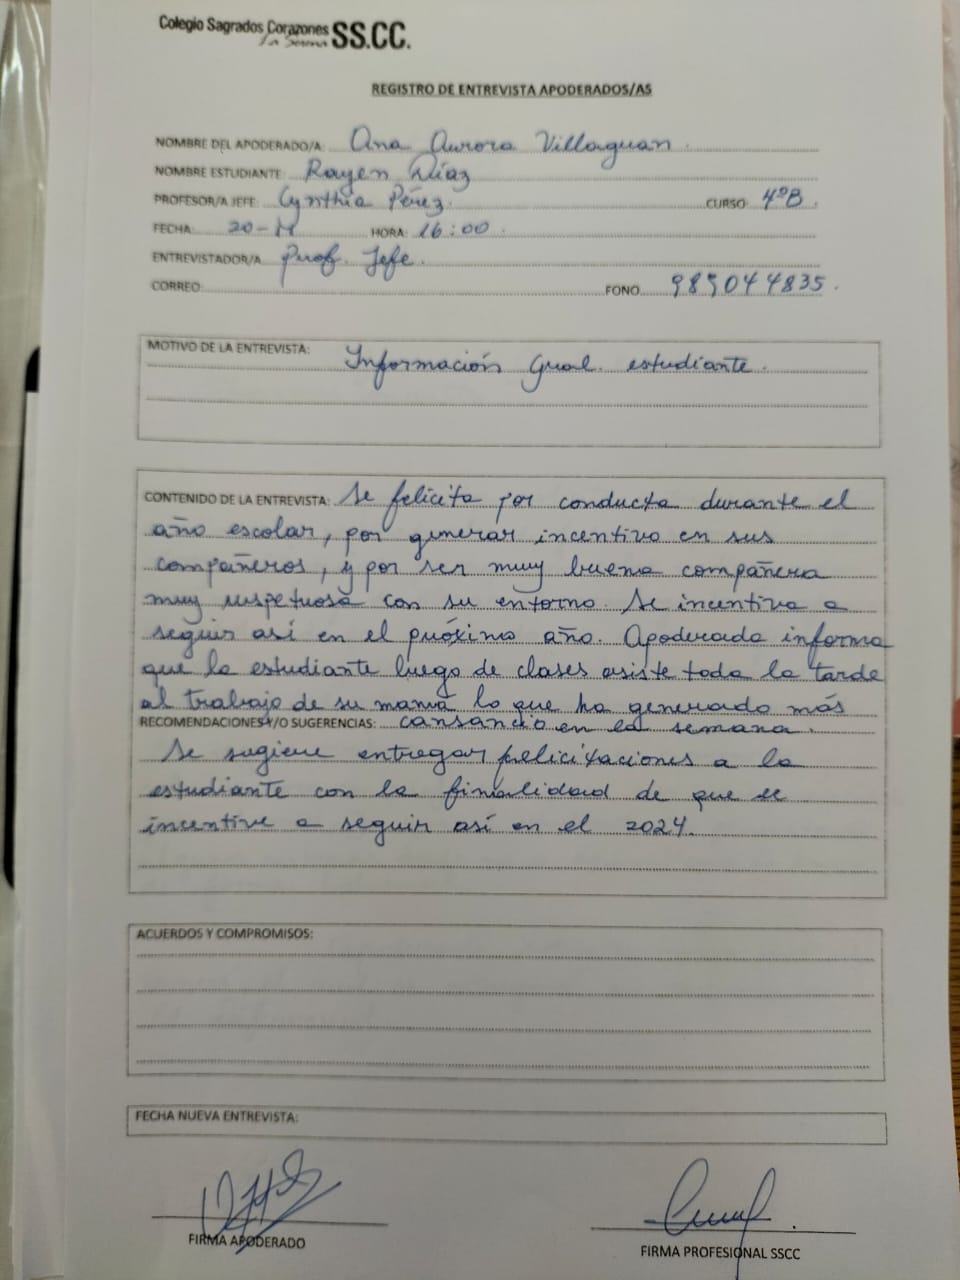 Colegio Sagrados Corazones
La Serena SS.CC.
REGISTRO DE ENTREVISTA APODERADOS/AS
NOMBRE DEL APODERADO/A: Ana Aurora Villaguan
NOMBRE ESTUDIANTE: Rayen Díaz
PROFESOR/A JEFE: Cynthia Pérez. CURSO: 4°B
FECHA: 20-11 HORA: 16:00
ENTREVISTADOR/A Prof. Jefe.
CORREO: FONO 985044835
MOTIVO DE LA ENTREVISTA: Información Gral. estudiante.
CONTENIDO DE LA ENTREVISTA: Se felicita por conducta durante el
año escolar, por generar incentivo en sus
compañeros, y por ser muy buena compañera
muy respetuosa con su entorno. Se incentiva a
seguir así en el próximo año. Apoderada informa
que la estudiante luego de clases asiste toda la tarde
al trabajo de su mamá lo que ha generado más
cansancio en la semana.
RECOMENDACIONES Y/O SUGERENCIAS:
Se sugiere entregar felicitaciones a la
estudiante con la finalidad de que se
incentive a seguir así en el 2024.
ACUERDOS Y COMPROMISOS:
FECHA NUEVA ENTREVISTA:
FIRMA APODERADO
FIRMA PROFESIONAL SSCC